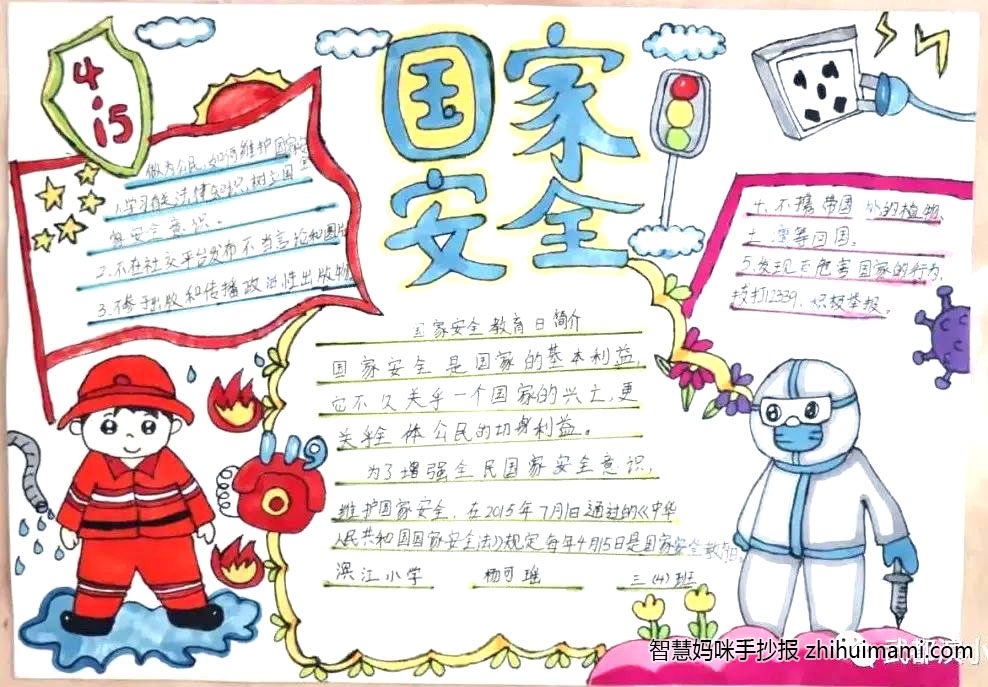 国家
安全
4
15
做为公民,如何维护国家安
1.学习有关法律知识,树立国
家安全意识。
2.不在社交平台发布不当言论和图片
3.不参于出版和传播政治性出版物
十、不携带国外的植物
土壤等回国。
5.发现有危害国家的行为,
拨打12339,积极举报。
国家安全教育日简介
国家安全是国家的基本利益,
它不仅关乎一个国家的兴亡,更
关乎全体公民的切身利益。
为了增强全民国家安全意识,
维护国家安全,在2015年7月1日通过的《中华
人民共和国国家安全法》规定每年4月15日是国家安全教育日。
119
滨江小学 杨可瑶 三(4)班
智慧妈咪手抄报 zhihuimami.com
武都滨小